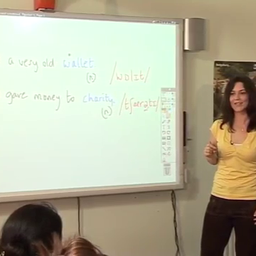 a very old wallet
(n) /wɒlɪt/
gave money to charity
(n) /tʃærɪti/